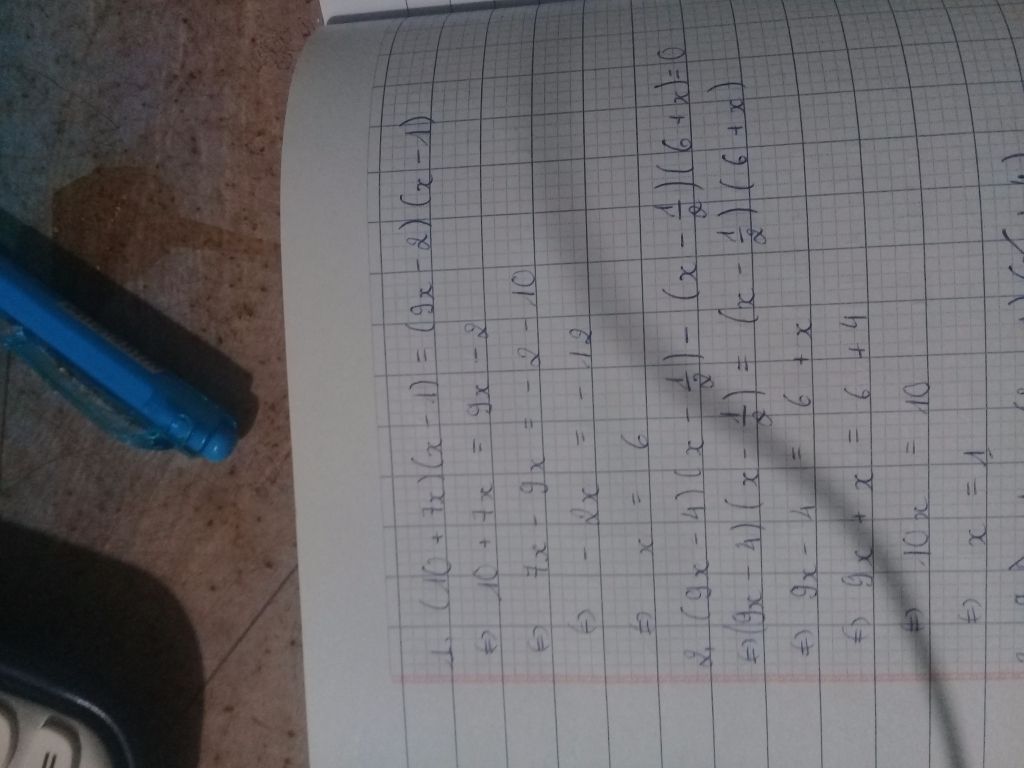 1, (10 + 7x)(x - 1) = (9x - 2)(x - 1)
⇔ 10 + 7x = 9x - 2
⇔ 7x - 9x = - 2 - 10
⇔ - 2x = - 12
⇔ x = 6
2, (9x - 4)(x - 1/2) - (x - 1/2)(6 + x) = 0
⇔ (9x - 4)(x - 1/2) = (x - 1/2)(6 + x)
⇔ 9x - 4 = 6 + x
⇔ 9x + x = 6 + 4
⇔ 10x = 10
⇔ x = 1